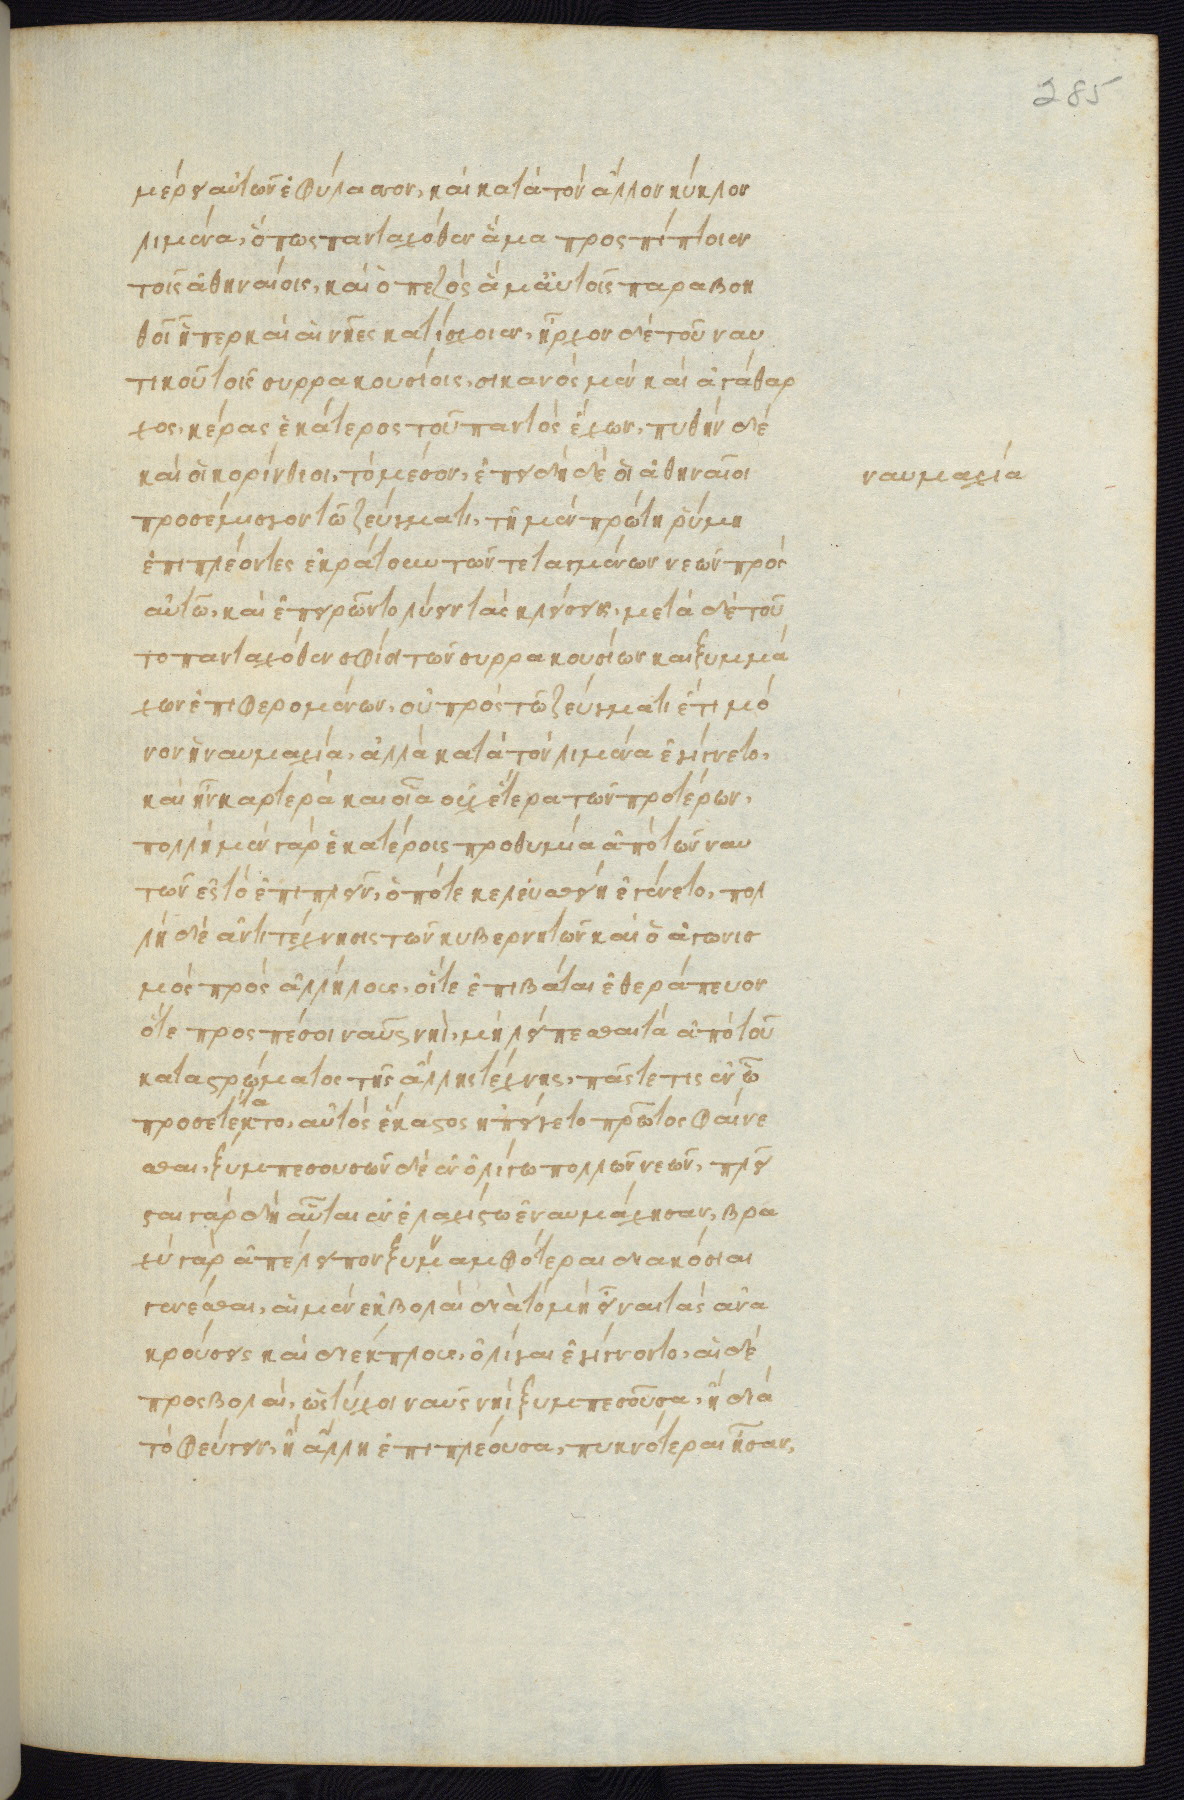 285
μέρει αὐτῶν ἐφύλασσον, καὶ κατὰ τὸν ἄλλον κύκλον
λιμένα, ὅπως πανταχόθεν ἅμα προσπίπτοιεν
τοῖς ἀθηναίοις, καὶ ὁ πεζὸς ἅμ' αὐτοῖς παραβοη
θοῖ ἧπερ καὶ αἱ νῆες κατίσχοιεν, ἦρχον δὲ τοῦ ναυ
τικοῦ τοῖς συρρακουσίοις, σικανὸς μὲν καὶ ἀγάθαρ
χος, κέρας ἑκάτερος τοῦ παντὸς ἔχων, πυθὴν δὲ
καὶ οἱ κορίνθιοι, τὸ μέσον, ἐπειδὴ δὲ οἱ ἀθηναῖοι
ναυμαχία
προσέμισγον τῶ ζεύγματι, τῆ μὲν πρώτη ῥύμη
ἐπιπλέοντες ἐκράτουν τῶν τεταγμένων νεῶν πρὸς
αὐτῶ, καὶ ἐπειρῶντο λύειν τὰς κλείσεις, μετὰ δὲ τοῦ
το πανταχόθεν σφίσι τῶν συρρακουσίων καὶ ξυμμά
χων ἐπιφερομένων, οὐ πρὸς τῶ ζεύγματι ἔτι μό
νον ἡ ναυμαχία, ἀλλὰ κατὰ τὸν λιμένα ἐγίγνετο,
καὶ ἦν καρτερὰ καὶ οἵα οὐχ ἑτέρα τῶν προτέρων,
πολλὴ μὲν γὰρ ἑκατέροις προθυμία ἀπὸ τῶν ναυ
τῶν ἐς τὸ ἐπιπλεῖν, ὁπότε κελευσθείη ἐγένετο, πολ
λὴ δὲ ἀντιτέχνησις τῶν κυβερνητῶν καὶ ὁ ἀγωνισ
μὸς πρὸς ἀλλήλους, οἵτε ἐπιβάται ἐθεράπευον
ὅτε προσπέσοι ναῦς νηὶ, μὴ λείπεσθαι τὰ ἀπὸ τοῦ
καταστρώματος τῆς ἄλλης τέχνης, πᾶς τέ τις ἐν ᾧ
προσετέτακτο, αὐτὸς ἕκαστος ἠπείγετο πρῶτος φαίνε
σθαι, ξυμπεσουσῶν δὲ ἐν ὀλίγω πολλῶν νεῶν, πλεῖ
σται γὰρ δὴ αὗται ἐν ἐλαχίστω ἐναυμάχησαν, βρα
χὺ γὰρ ἀπέλειπον ξυναμφότεραι διακόσιαι
γενέσθαι, αἱ μὲν ἐκβολαὶ διὰ τὸ μὴ εἶναι τὰς ἀνα
κρούσεις καὶ διέκπλους, ὀλίγαι ἐγίγνοντο, αἱ δὲ
προσβολαὶ, ὡς τύχοι ναῦς νηὶ ξυμπεσοῦσα, ἢ διὰ
τὸ φεύγειν, ἢ ἄλλη ἐπιπλέουσα, πυκνότεραι ἦσαν,